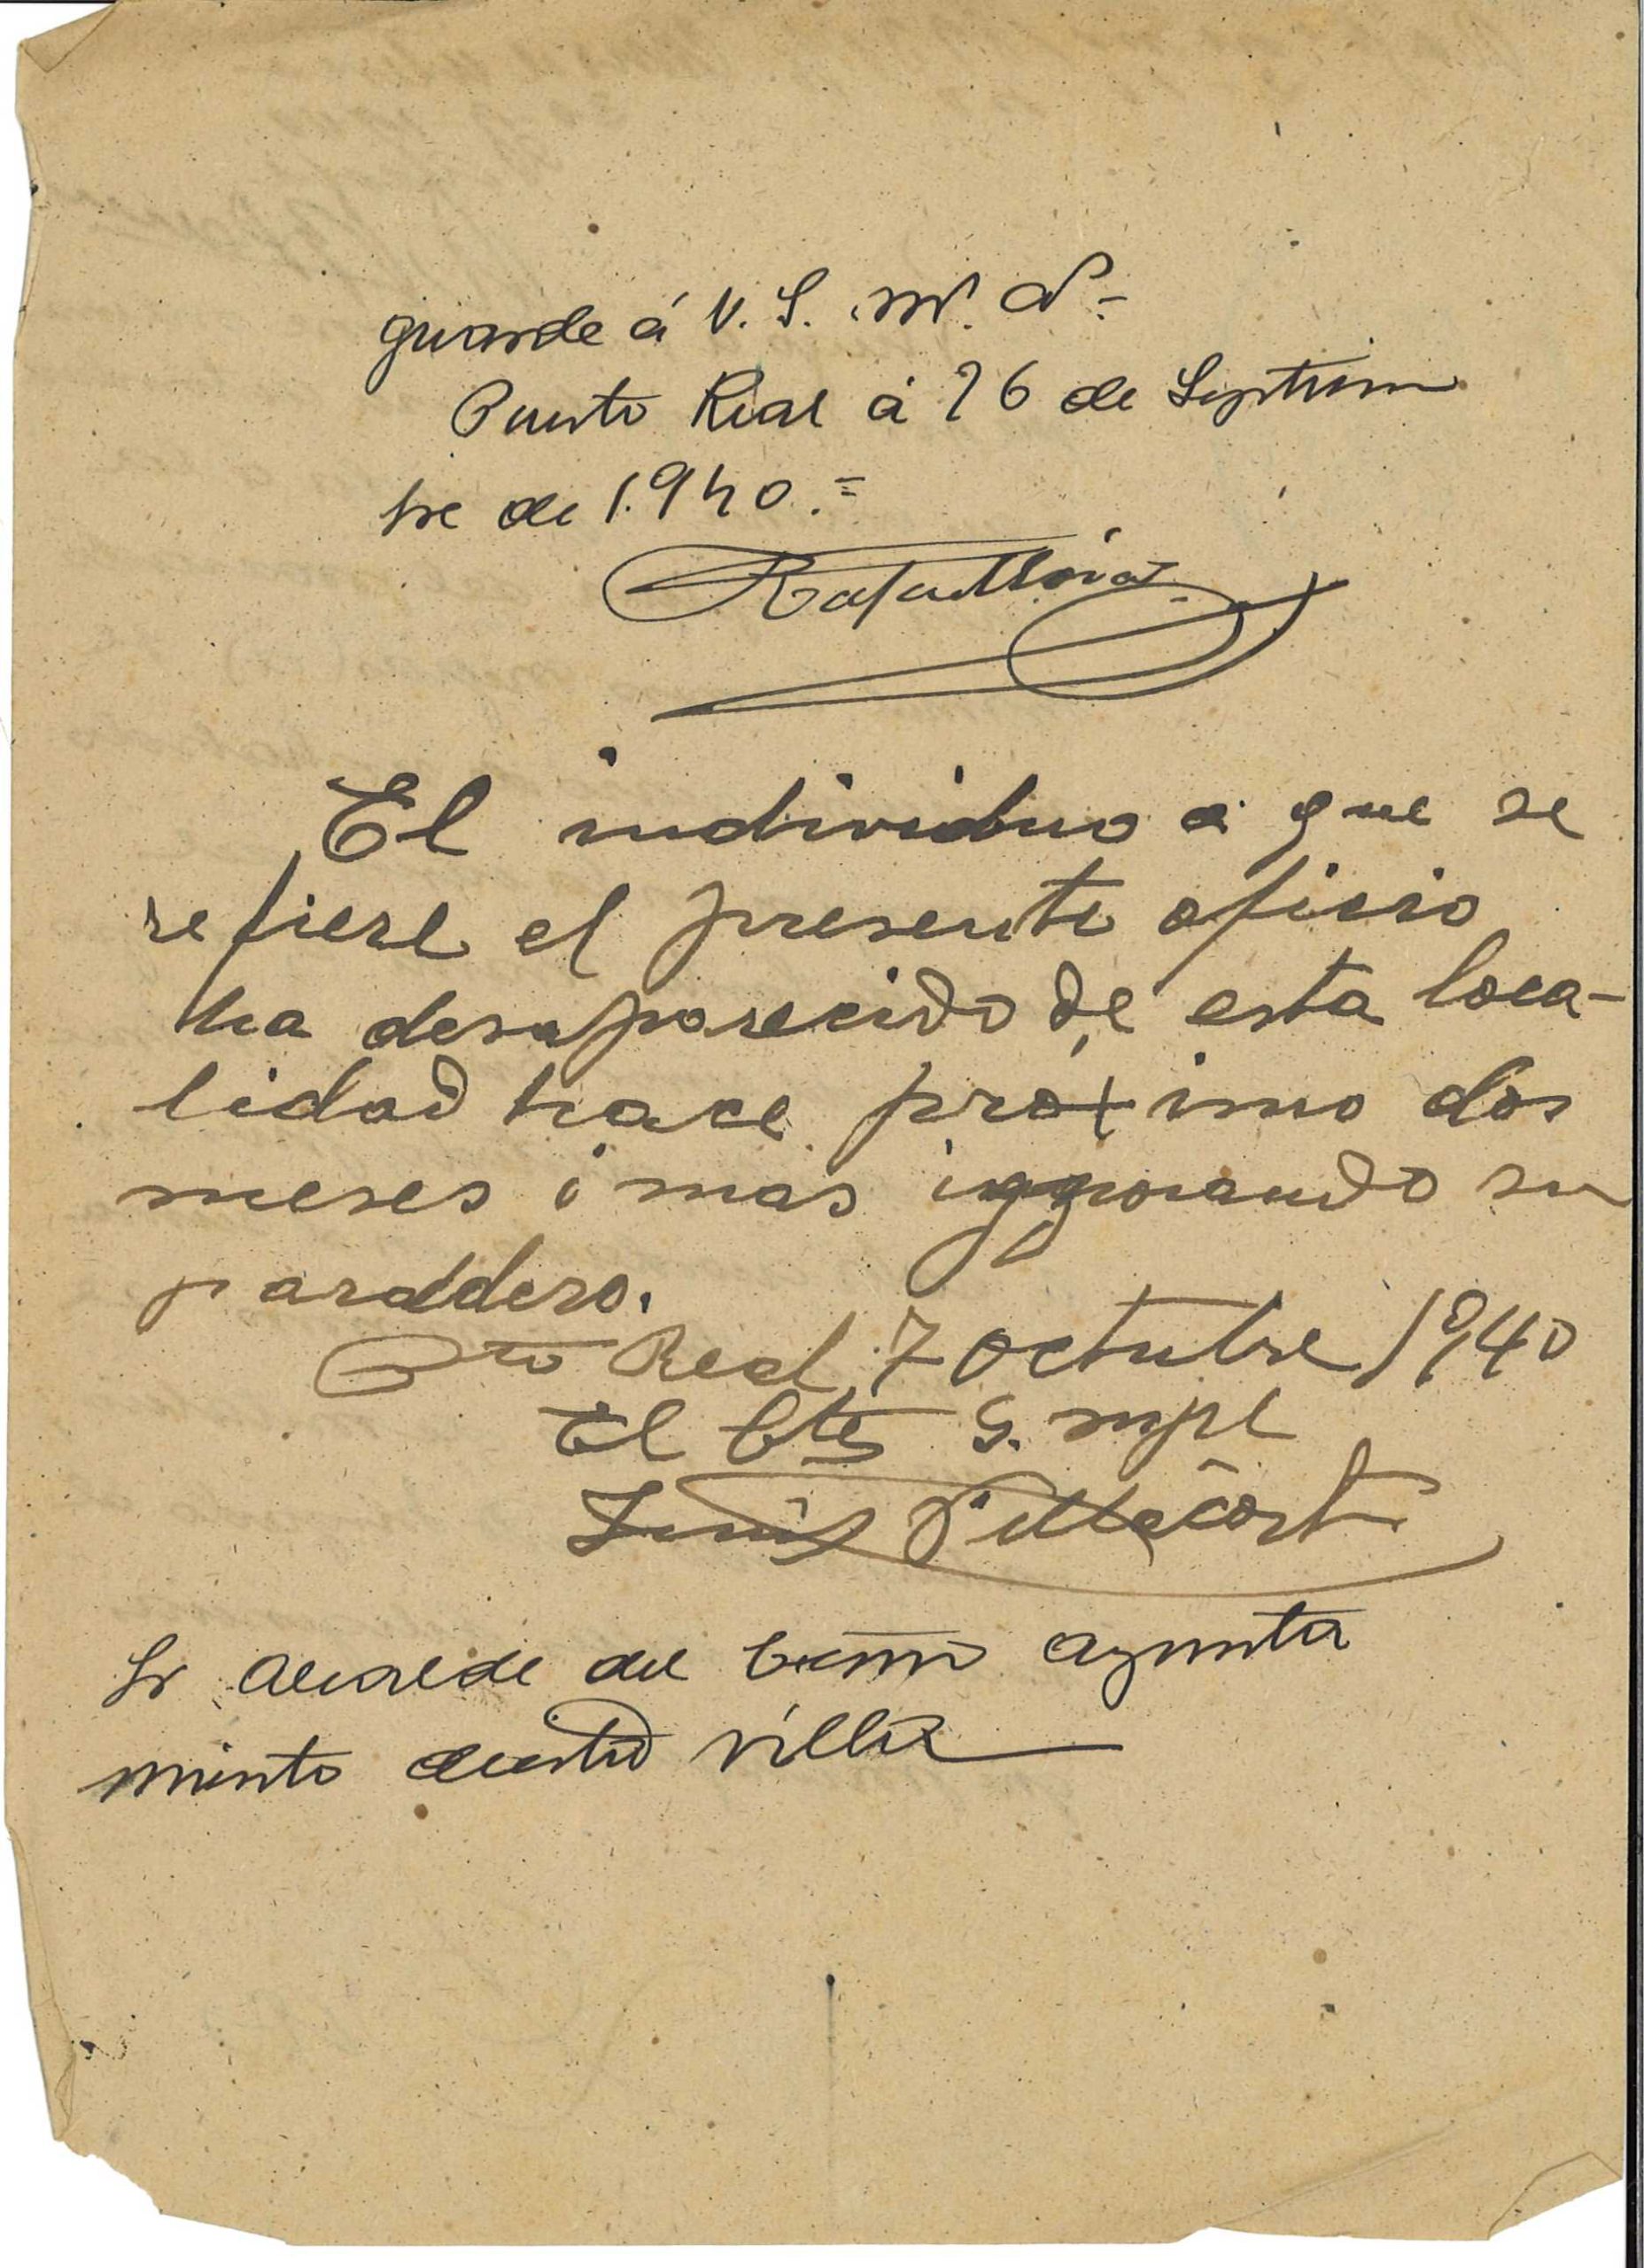 guarde á V. S. m. a.=
Puerto Real á 26 de Septiem
bre de 1.940.=
Rafael
El individuo a que se
refiere el presente oficio
ha desaparecido de esta loca-
lidad hace próximo dos
meses i mas ignorando su
paraddero.
Pto Real 7 octubre 1940
El G. mpl
Luis
Sr Alcalde del Excmo ayunta
miento de esta villa